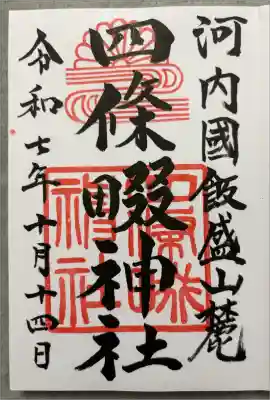 河内國飯盛山麓
四條畷神社
令和七年十月十四日